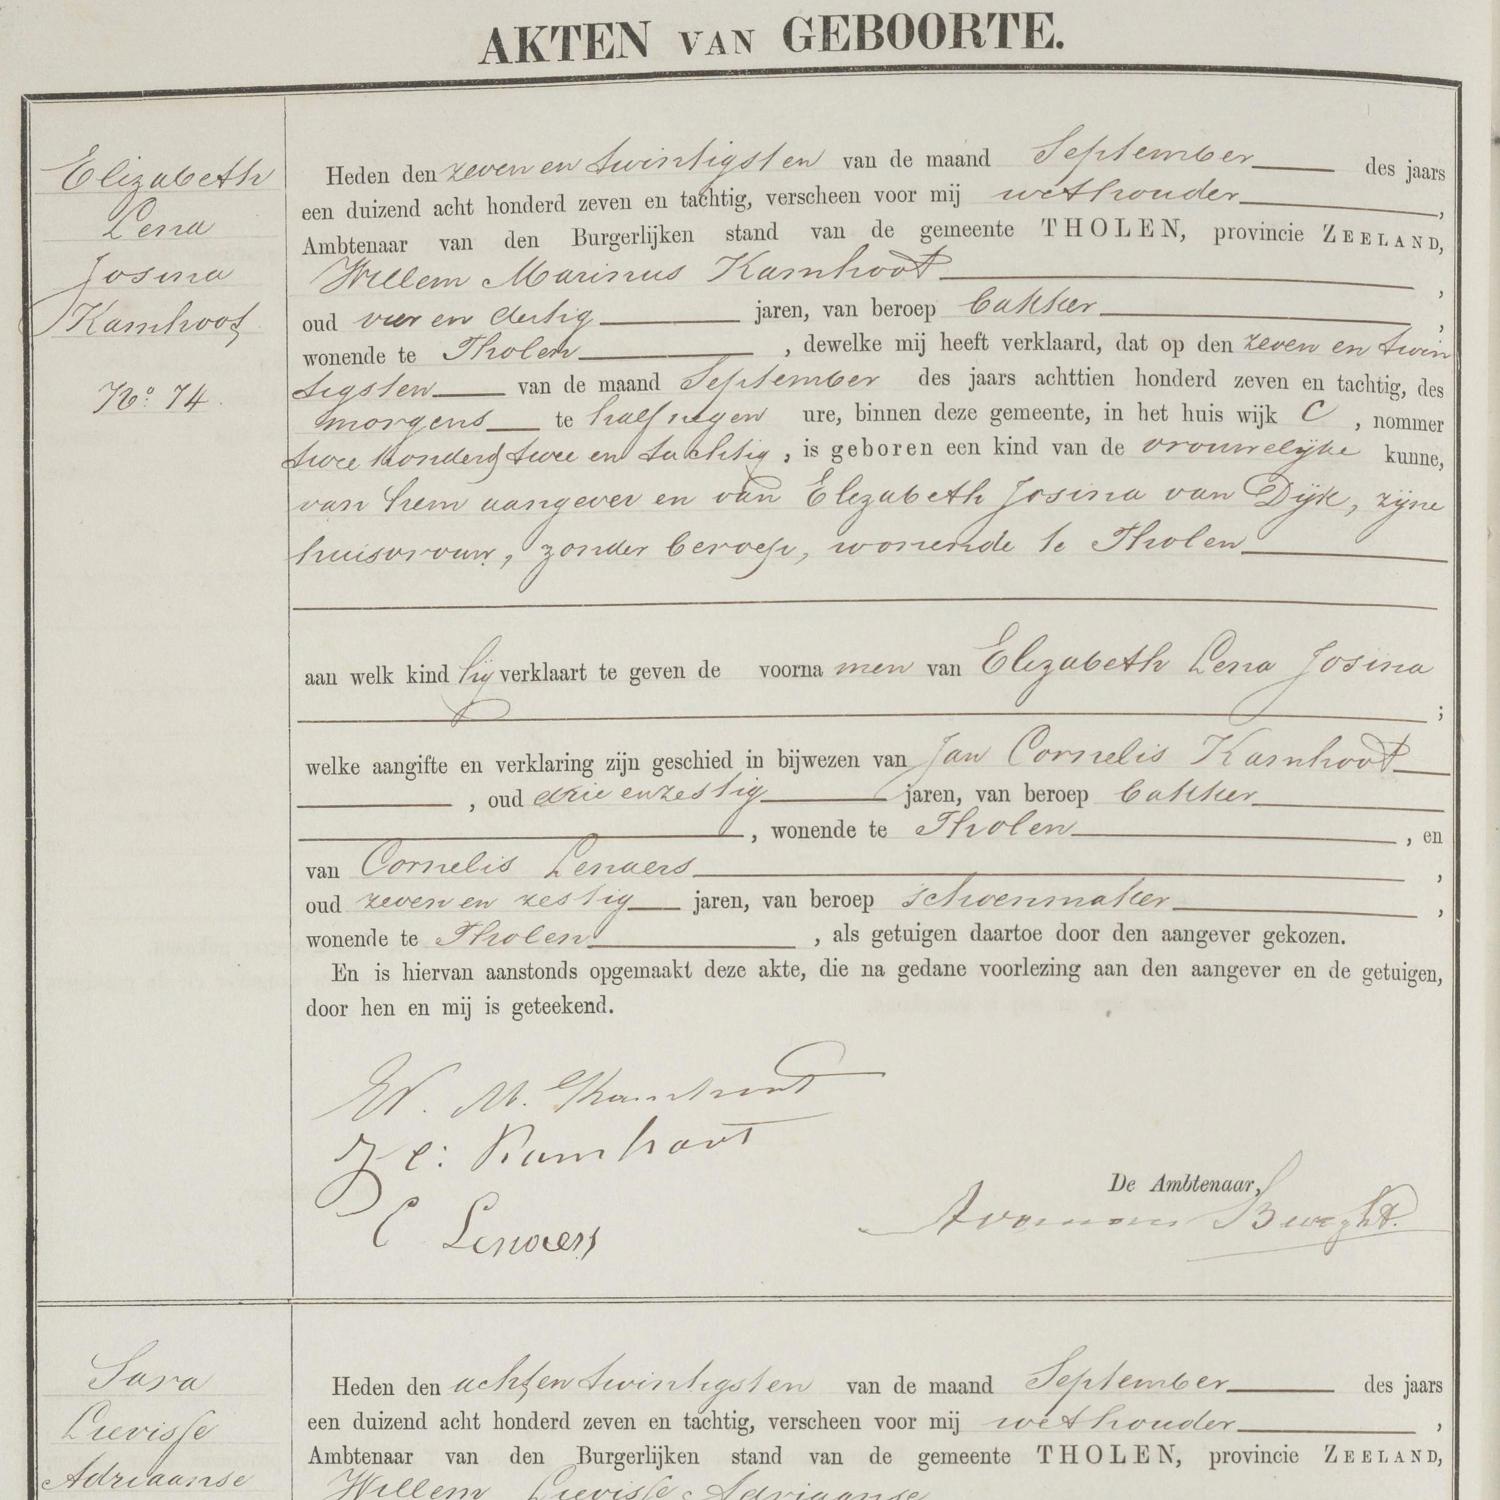 AKTEN VAN GEBOORTE.
Elizabeth
Lena
Josina
Kamhoot
No. 74.
Heden den zeven en twintigsten van de maand September des jaars
een duizend acht honderd zeven en tachtig, verscheen voor mij wethouder,
Ambtenaar van den Burgerlijken stand van de gemeente THOLEN, provincie ZEELAND,
Willem Marinus Kamhoot,
oud vier en dertig jaren, van beroep bakker,
wonende te Tholen, dewelke mij heeft verklaard, dat op den zeven en twin
tigsten van de maand September des jaars achttien honderd zeven en tachtig, des
morgens te half negen ure, binnen deze gemeente, in het huis wijk C, nommer
twee honderd twee en tachtig, is geboren een kind van de vrouwelijke kunne,
van hem aangever en van Elizabeth Josina van Dijk, zijne
huisvrouw, zonder beroep, wonende te Tholen
aan welk kind hij verklaart te geven de voornamen van Elizabeth Lena Josina
;
welke aangifte en verklaring zijn geschied in bijwezen van Jan Cornelis Kamhoot
, oud drie en zestig jaren, van beroep bakker
, wonende te Tholen, en
van Cornelis Lenaers,
oud zeven en zestig jaren, van beroep schoenmaker,
wonende te Tholen, als getuigen daartoe door den aangever gekozen.
En is hiervan aanstonds opgemaakt deze akte, die na gedane voorlezing aan den aangever en de getuigen,
door hen en mij is geteekend.
W. M. Kamhoot
J C: Kamhoot
C Lenaers
De Ambtenaar,
Sara
Lievisse
Adriaanse
Heden den acht en twintigsten van de maand September des jaars
een duizend acht honderd zeven en tachtig, verscheen voor mij wethouder,
Ambtenaar van den Burgerlijken stand van de gemeente THOLEN, provincie ZEELAND,
Willem Lievisse Adriaanse